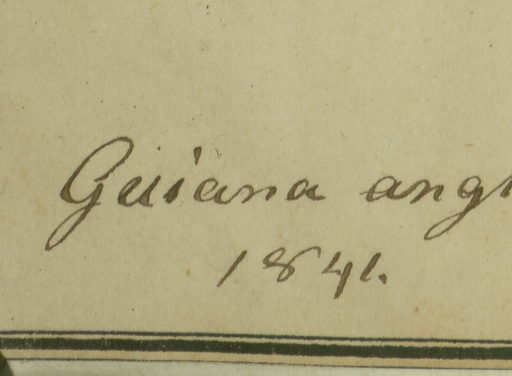 Guiana angl
1841.